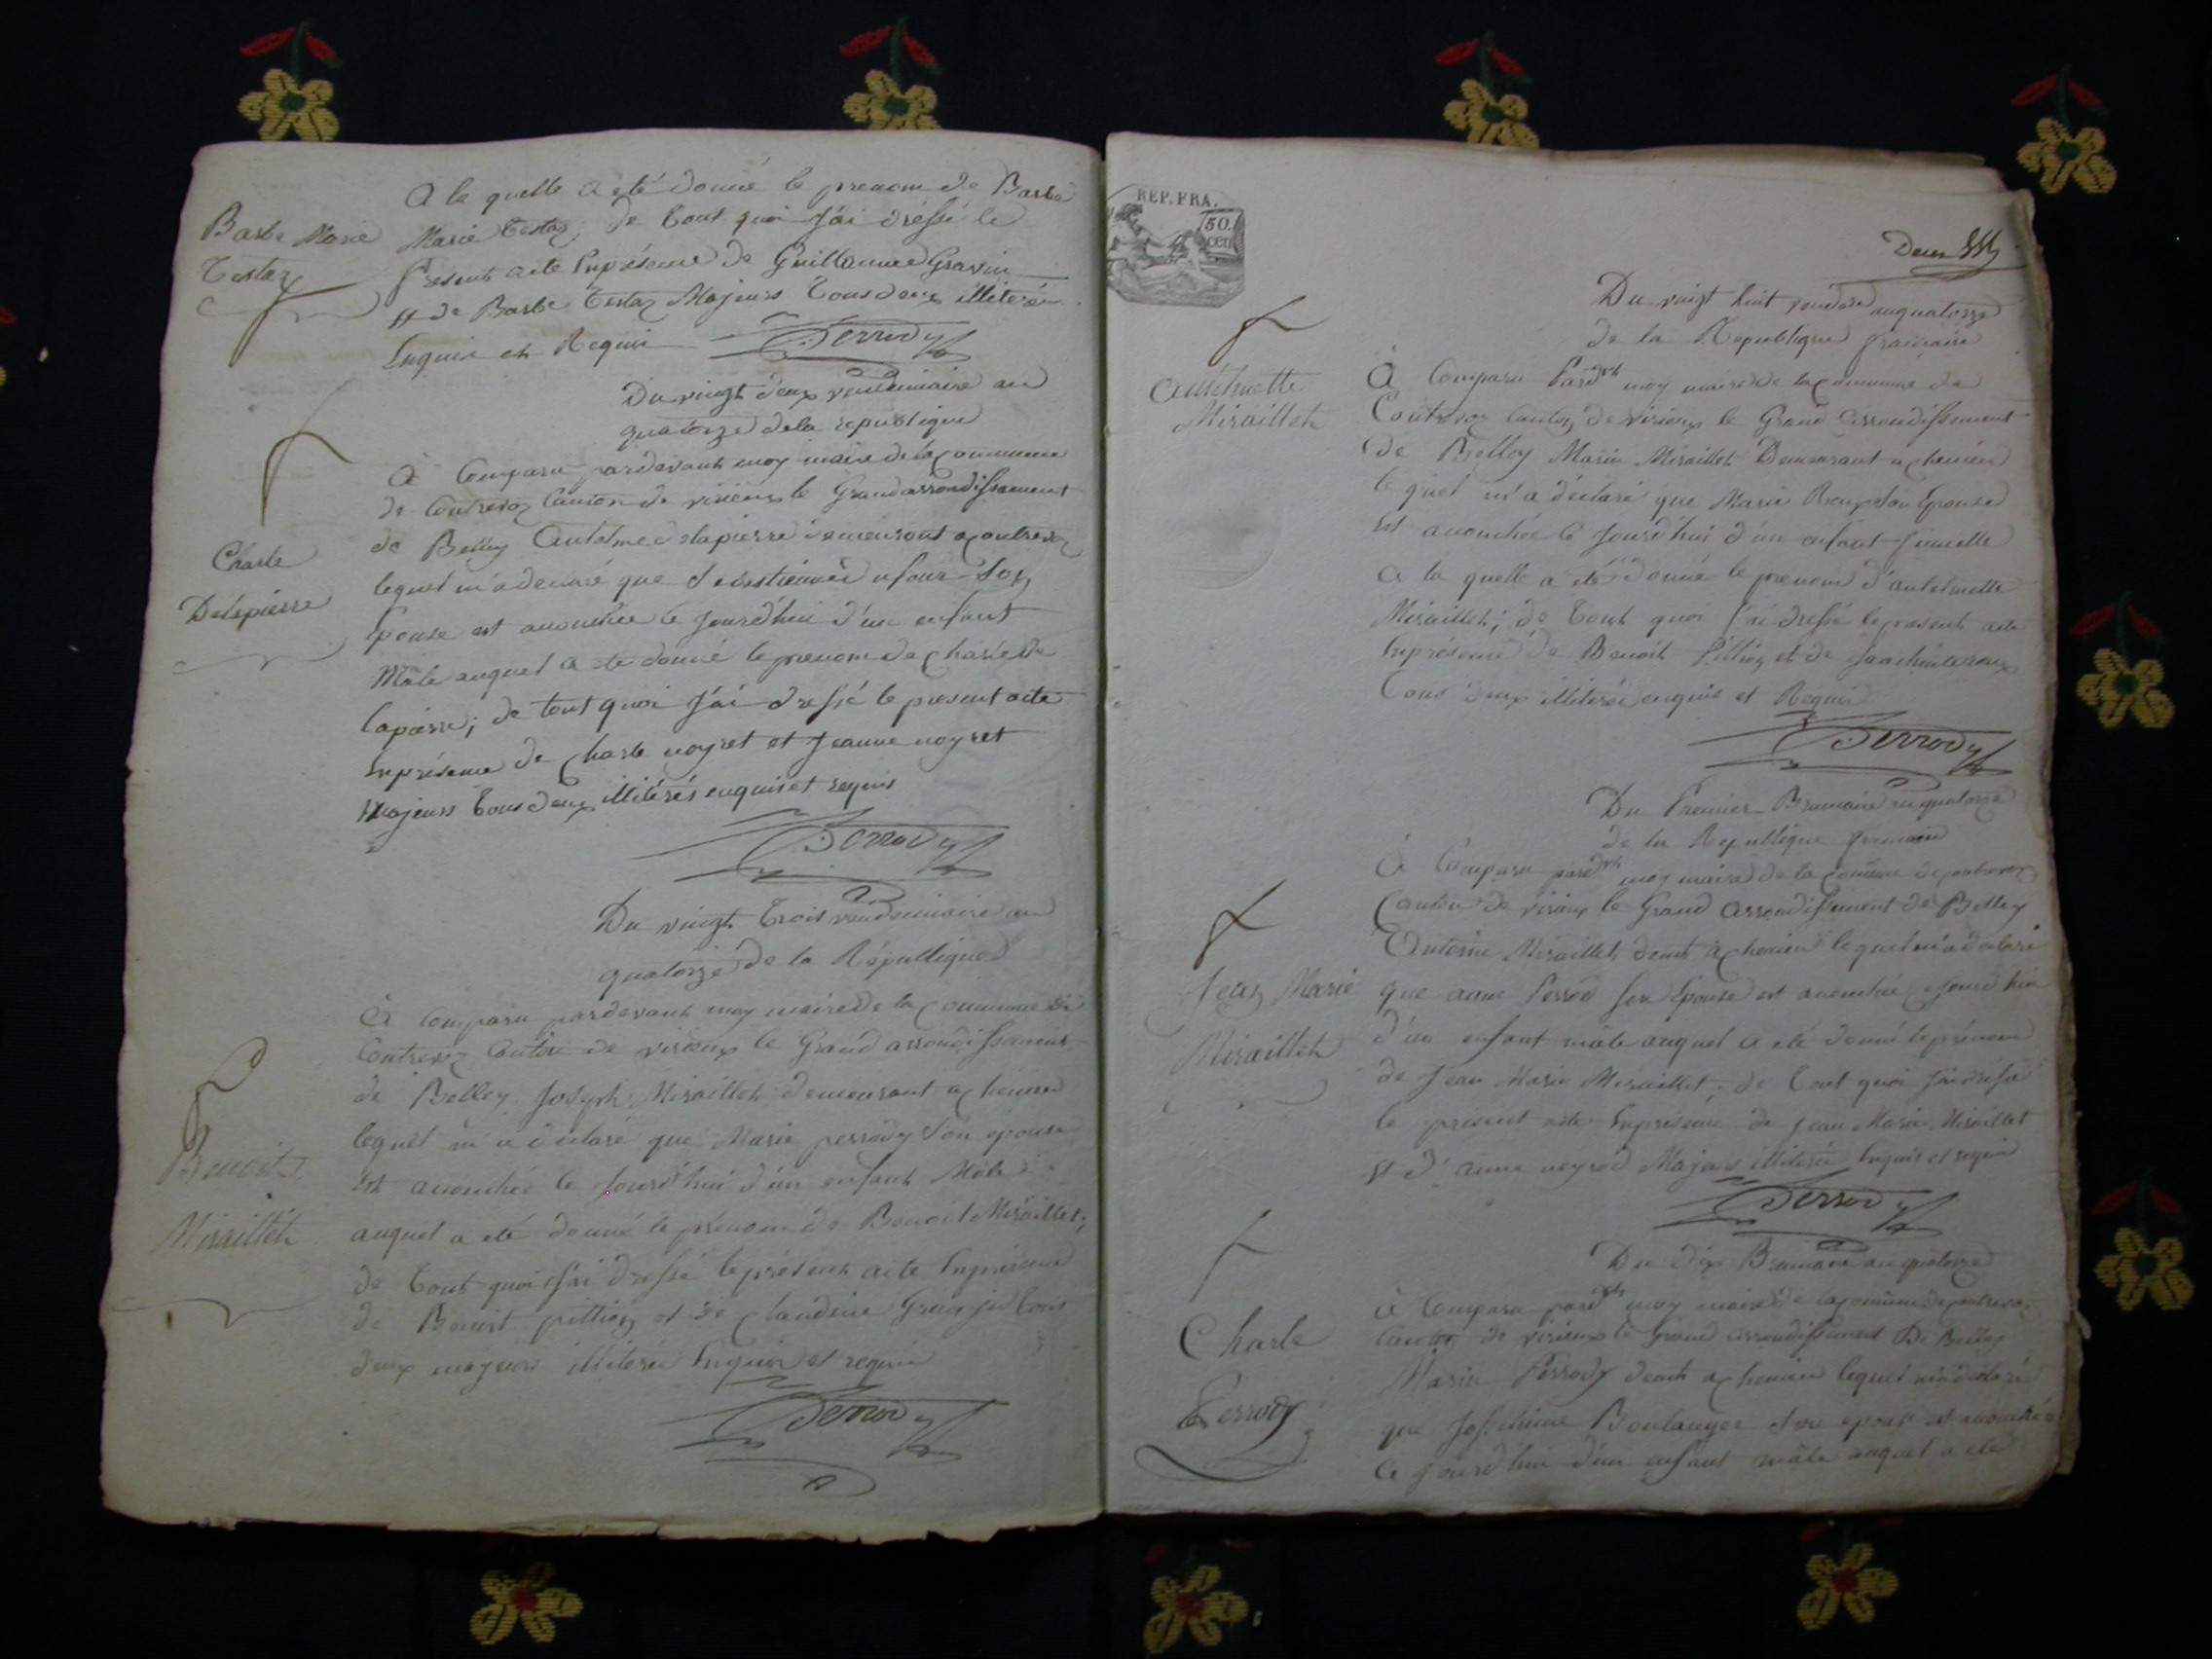 A la quelle a été donné le prenom de Barbe
Barbe Marie
Testaz
Marie Testaz; de tout quoi J'ai dréssé le
Present acte En présence de Guillaume Gravin
et de Barbe Testaz Majeurs Tous deux illiteré
Enquis et Requis
Perrody
Du vingt deux vendemiaire an
quatorze de la republique
Charle
Delapierre
A Comparu pardevant moy maire de la Commune
de Contrevoz Canton de virieux le Grand arrondissement
de Belley Antelme delapierre demeurant a contrevoz
lequel m'a declaré que son
Epouse est accouchée ce Jourd'hui d'un enfant
Mâle auquel a été donné le prenom de Charle De
lapierre; de tout quoi J'ai dressé le present acte
En présence de Charle noyret et Jeanne noyret
Majeurs tous deux illitérés enquis et requis
Perrody
Du vingt Trois vendemiaire an
quatorze de la République
Benoit
Miraillet
A comparu pardevant moy maire de la Commune de
Contrevoz Canton de virieux le Grand arrondissement
de Belley Joseph Miraillet demeurant a chemin
lequel m'a déclaré que Marie perrody son épouse
est accouchée ce Jourd'hui d'un enfant Mâle
auquel a eté donné le prénom de Benoit Miraillet;
de tout quoi J'ai dressé le présent acte En présence
de Benoit pillion et de Claudine tous
deux majeurs illiteré Enquis et requis
Perrody
REP. FRA.
50.
cen
Deux
Du vingt huit vendre an quatorze
de la Republique francaise
Antelmette
Miraillet
A Comparu Pardvt moy maire de la Commune de
Contrevoz Canton de virieux le Grand arrondissement
de Belley Marin Miraillet Demeurant a chemin
le quel m'a déclaré que Marie Roux son Epouse
est accouchée ce Jourd'hui d'un enfant fémelle
a la quelle a été donné le prenom d'antelmette
Miraillet; de tout quoi J'ai dressé le présent acte
En présence de Benoit Pillion et de Jaachinte roux
Tous deux illiteré enquis et Requis
Perrody
Du Premier Brumaire an quatorze
de la Republique francaise
Jean Marie
Miraillet
A Comparu pardvt moy maire de la Commune de contrevoz
Canton de virieux le Grand arrondissement de Belley
Antoine Miraillet demt a chemin lequel m'a déclaré
que anne Perrod son Epouse est accouchée ce Jourd'hui
d'un enfant mâle auquel a eté donné le prénom
de Jean Marie Miraillet; de tout quoi J'ai dressé
le présent acte En présence de Jean Marie Miraillet
et d'anne Majeurs illiteré Enquis et requis
Perrody
Du dix Brumaire an quatorze
Charle
Perrody
A Comparu pardvt moy maire de la commune de contrevoz
Canton de virieux le Grand arrondissement De Belley
Marin Perrody demt a chemin lequel m'a déclaré
que Josephine Boulanger son epouse est accouchée
ce Jourd'hui d'un enfant mâle auquel a eté